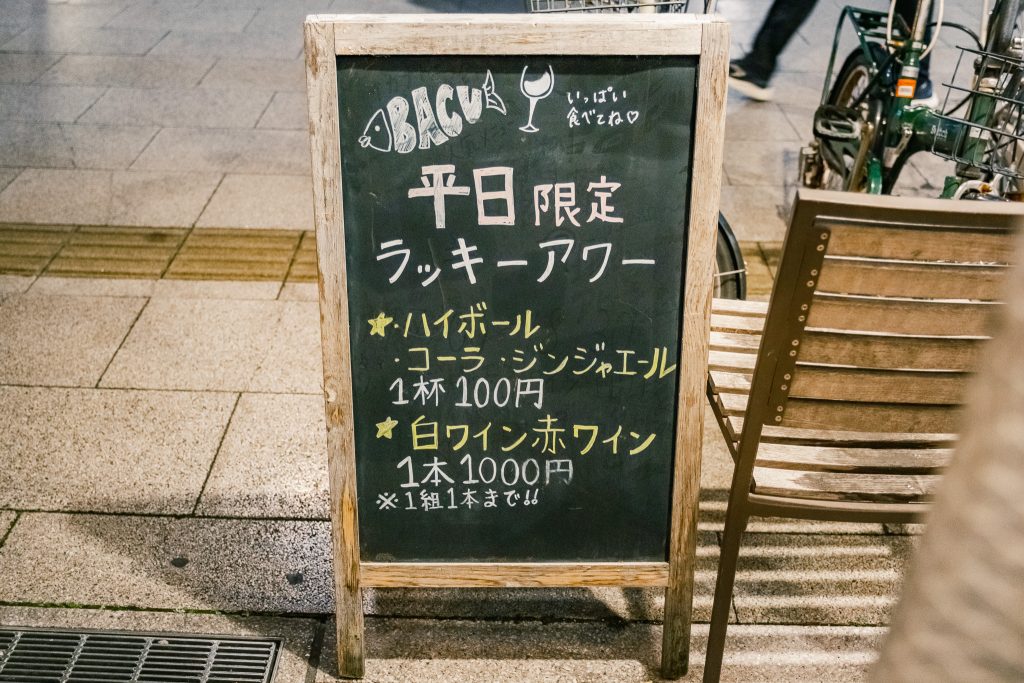 BACU
いっぱい
食べてね♡
平日限定
ラッキーアワー
★・ハイボール
・コーラ・ジンジャエール
1杯100円
★白ワイン赤ワイン
1本1000円
※1組1本まで!!